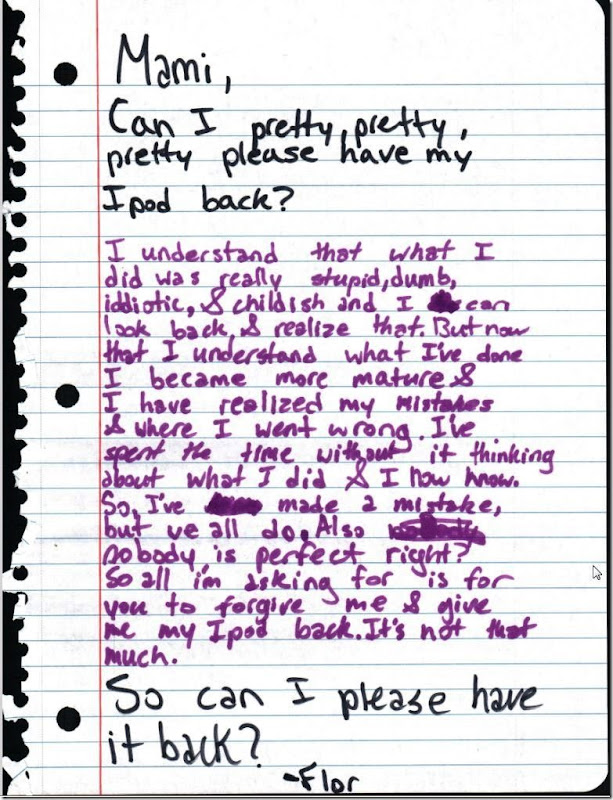 Mami,
Can I pretty, pretty,
pretty please have my
Ipod back?
I understand that what I
did was really stupid, dumb,
iddiotic, & childish and I can
look back, & realize that. But now
that I understand what I've done
I became more mature &
I have realized my mistakes
& where I went wrong. I've
spent the time without it thinking
about what I did & I now know.
So, I've made a mistake,
but we all do. Also
nobody, is perfect right?
So all i'm asking for is for
you to forgive me & give
me my Ipod back. It's not that
much.
So can I please have
it back?
-Flor